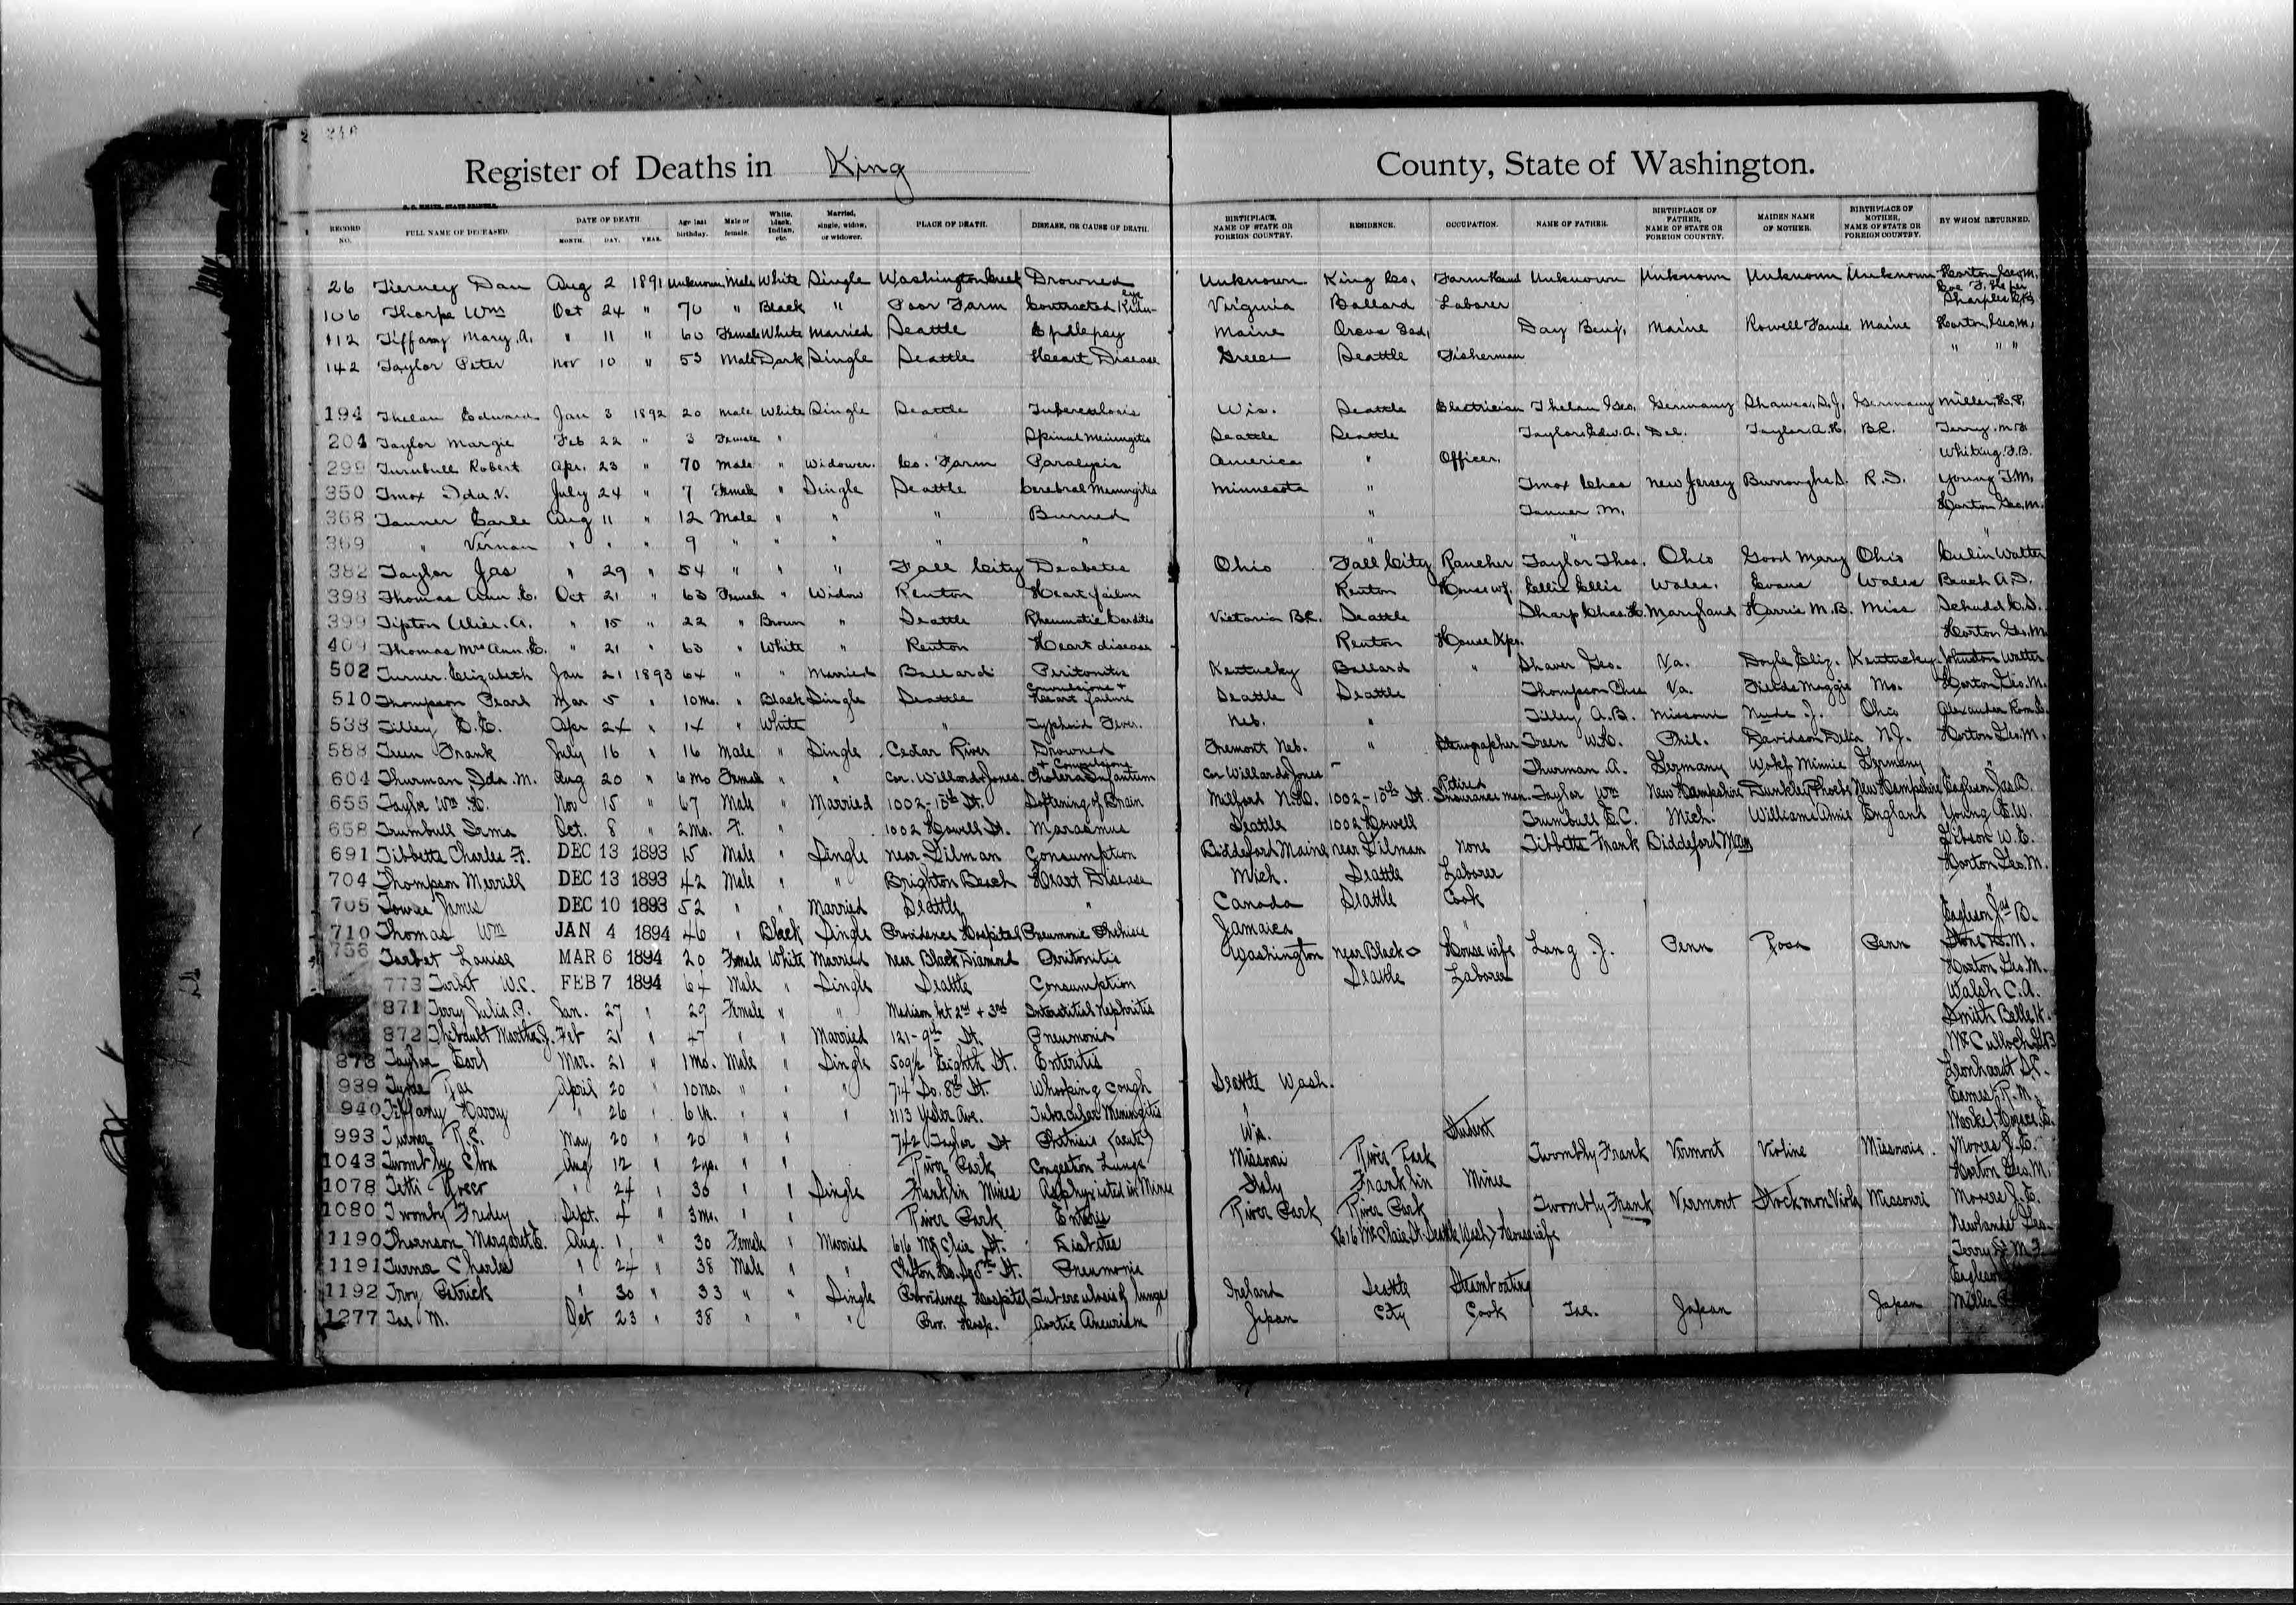 246
Register of Deaths in King County, State of Washington.
RECORD NO. FULL NAME OF DECEASED. DATE OF DEATH. MONTH. DAY. YEAR. Age last birthday. Male or female. White, black, Indian, etc. Married, single, widow, or widower. PLACE OF DEATH. DISEASE, OR CAUSE OF DEATH. BIRTHPLACE, NAME OF STATE OR FOREIGN COUNTRY. RESIDENCE. OCCUPATION. NAME OF FATHER. BIRTHPLACE OF FATHER, NAME OF STATE OR FOREIGN COUNTRY. MAIDEN NAME OF MOTHER. BIRTHPLACE OF MOTHER, NAME OF STATE OR FOREIGN COUNTRY. BY WHOM RETURNED.
26 Tierney Dan Aug 2 1891 Unknown Male White Single Washington Drowned Unknown King Co. Farm Hand Unknown Unknown Unknown Unknown Horton Geo. M.
106 Thorpe Wm Oct 24 " 70 " Black " Poor Farm Contracted Virginia Ballard Laborer
112 Tiffany Mary A. " 11 " 60 Female White Married Seattle Epilepsy Maine Day Benj. Maine Rowell Maine Horton Geo. M.
142 Taylor Peter Nov 10 " 53 Male Dark Single Seattle Heart Disease Greece Seattle Fisherman " " "
194 Thelan Edward Jan 3 1892 20 Male White Single Seattle Tuberculosis Wis. Seattle Electrician Thelan Geo. Germany Germany Miller
204 Taylor Margie Feb 22 " 3 Female " " Spinal Meningitis Seattle Seattle Taylor Edw. A. Del. Taylor A. H. B.C. Terry
299 Turnbull Robert Apr. 23 " 70 Male " Widower. Co. Farm Paralysis America " Officer. Whiting F. B.
350 Tmox Ida V. July 24 " 7 Female " Single Seattle Cerebral Meningitis Minnesota " Tmox Chas New Jersey Burroughs Young T. M.
368 Tanner Earle Aug 11 " 12 Male " " " Burned " Tanner M. Horton Geo. M.
369 " Vernon " " " 9 " " " " " " " "
382 Taylor Jas " 29 " 54 " " " Fall City Deabetes Ohio Fall City Rancher Taylor Thos. Ohio Good Mary Ohio Walter
398 Thomas Ann E. Oct 21 " 63 Female " Widow Renton Heart failure Renton House wf. Ellis Ellis Wales. Evans Wales Beach A. D.
399 Tipton Alice A. " 15 " 22 " Brown " Seattle Rheumatic Carditis Victoria B.C. Seattle Sharp Chas. H. Maryland Harris M. B. Miss
409 Thomas Mrs Ann. E. " 21 " 63 " White " Renton Heart disease Renton House Kpr. Horton Geo. M.
502 Turner Elizabeth Jan 21 1893 64 " " Married Ballard Peritonitis Kentucky Ballard " Shaver Geo. Va. Doyle Eliz. Kentucky. Johnston Walter
510 Thompson Pearl Mar 5 " 10 mo. " Black Single Seattle Convulsions + Heart failure Seattle Seattle Thompson Chas Va. Fields Maggie Mo. Horton Geo. M.
538 Tilley E. E. Apr 24 " 14 " White " Typhoid Fever. Neb. " Tilley A. B. Missouri Nude J. Ohio Alexander
588 Teen Frank July 16 " 16 Male " Single Cedar River Drowned Fremont Neb. " Stenographer Teen W. H. Phil. Davidson Delia N.J. Horton Geo. M.
604 Thurman Ida M. Aug 20 " 6 mo Female " " Cor. Willard & Jones. Cholera Infantum + Convulsions Cor Willard & Jones Thurman A. Germany Minnie Germany "
655 Taylor Wm H. Nov 15 " 67 Male " Married 1002-15th St. Softening of Brain Milford N.H. 1002-15th St. Retired Insurance man. Taylor Wm New Hampshire Dunklee Phoebe New Hampshire Eagleson Jas B.
658 Trumbull Irma Oct. 8 " 2 mo. F. " 1002 Howell St. Marasmus Seattle 1002 Howell Trumbull E. C. Mich. Williams Annie England Young E. W.
691 Tibbetts Charles F. DEC 13 1893 15 Male " Single near Gilman Consumption Biddeford Maine near Gilman none Tibbetts Frank Biddeford Gibson W. E.
704 Thompson Merrill DEC 13 1893 42 Male " " Brighton Beach Heart Disease Mich. Seattle Laborer Horton Geo. M.
705 James DEC 10 1893 52 " " Married Seattle " Canada Seattle Cook "
710 Thomas Wm JAN 4 1894 46 " Black Single Providence Hospital Pneumonic Phthisis Jamaica " Eagleson Jas B.
756 Tarbet Louise MAR 6 1894 20 Female White Married near Black Diamond Peritonitis Washington near Black House wife Lang J. Penn Rosa Penn Stone M.
773 Turbet W. C. FEB 7 1894 64 Male " Single Seattle Consumption Seattle Laborer Horton Geo. M.
871 Terry Julia P. Jan. 27 " 29 Female " " Madison bet 2nd + 3rd Interstitial Nephritis Walsh C. A.
872 Thibault Martha J. Feb 21 " 47 " " Married 121-9th St. Pneumonia Smith Belle
873 Taylor Earl Mar. 21 " 1 mo. Male " Single 509½ Eighth St. Enteritis McCulloch
939 Rae April 20 " 10 mo. " " " 714 So. 8th St. Whooping Cough Seattle Wash. Leonhardt
940 Tiffany Harry " 26 " 6 yr. " " " 1113 Yesler Ave. Tubercular Meningitis " Eames R. M.
993 Turner R. C. May 20 " 20 " " 742 Taylor St Phthisis (acute) Wis. Student
1043 Twombly Aug 12 " 2 yrs. " " River Park Congestion Lungs Missouri River Park Twombly Frank Vermont Violine Missouri. Moores J. E.
1078 Tetti " 24 " 30 " " Single Franklin Mines Asphyxiated in Mine Italy Franklin Miner Horton Geo. M.
1080 Twomby Fredey Sept. 4 " 3 mo. " " River Park Enteris River Park River Park Twombly Frank Vermont Stockmon Viola Missouri Moores J. E.
1190 Thornson Margaret E. Aug. 1 " 30 Female " Married 616 McClair St. Diabetes (616 McClair St. Seattle Wash) Housewife Newlands Geo.
1191 Turner Charles " 24 " 38 Male " " Pneumonia Terry
1192 Troy Patrick " 30 " 33 " " Single Providence Hospital Tuberculosis of lungs Ireland Seattle Steamboating
1277 Tae M. Oct 23 " 38 " " " Prov. Hosp. Aortic Aneurism Japan City Cook Tae. Japan Japan Miller